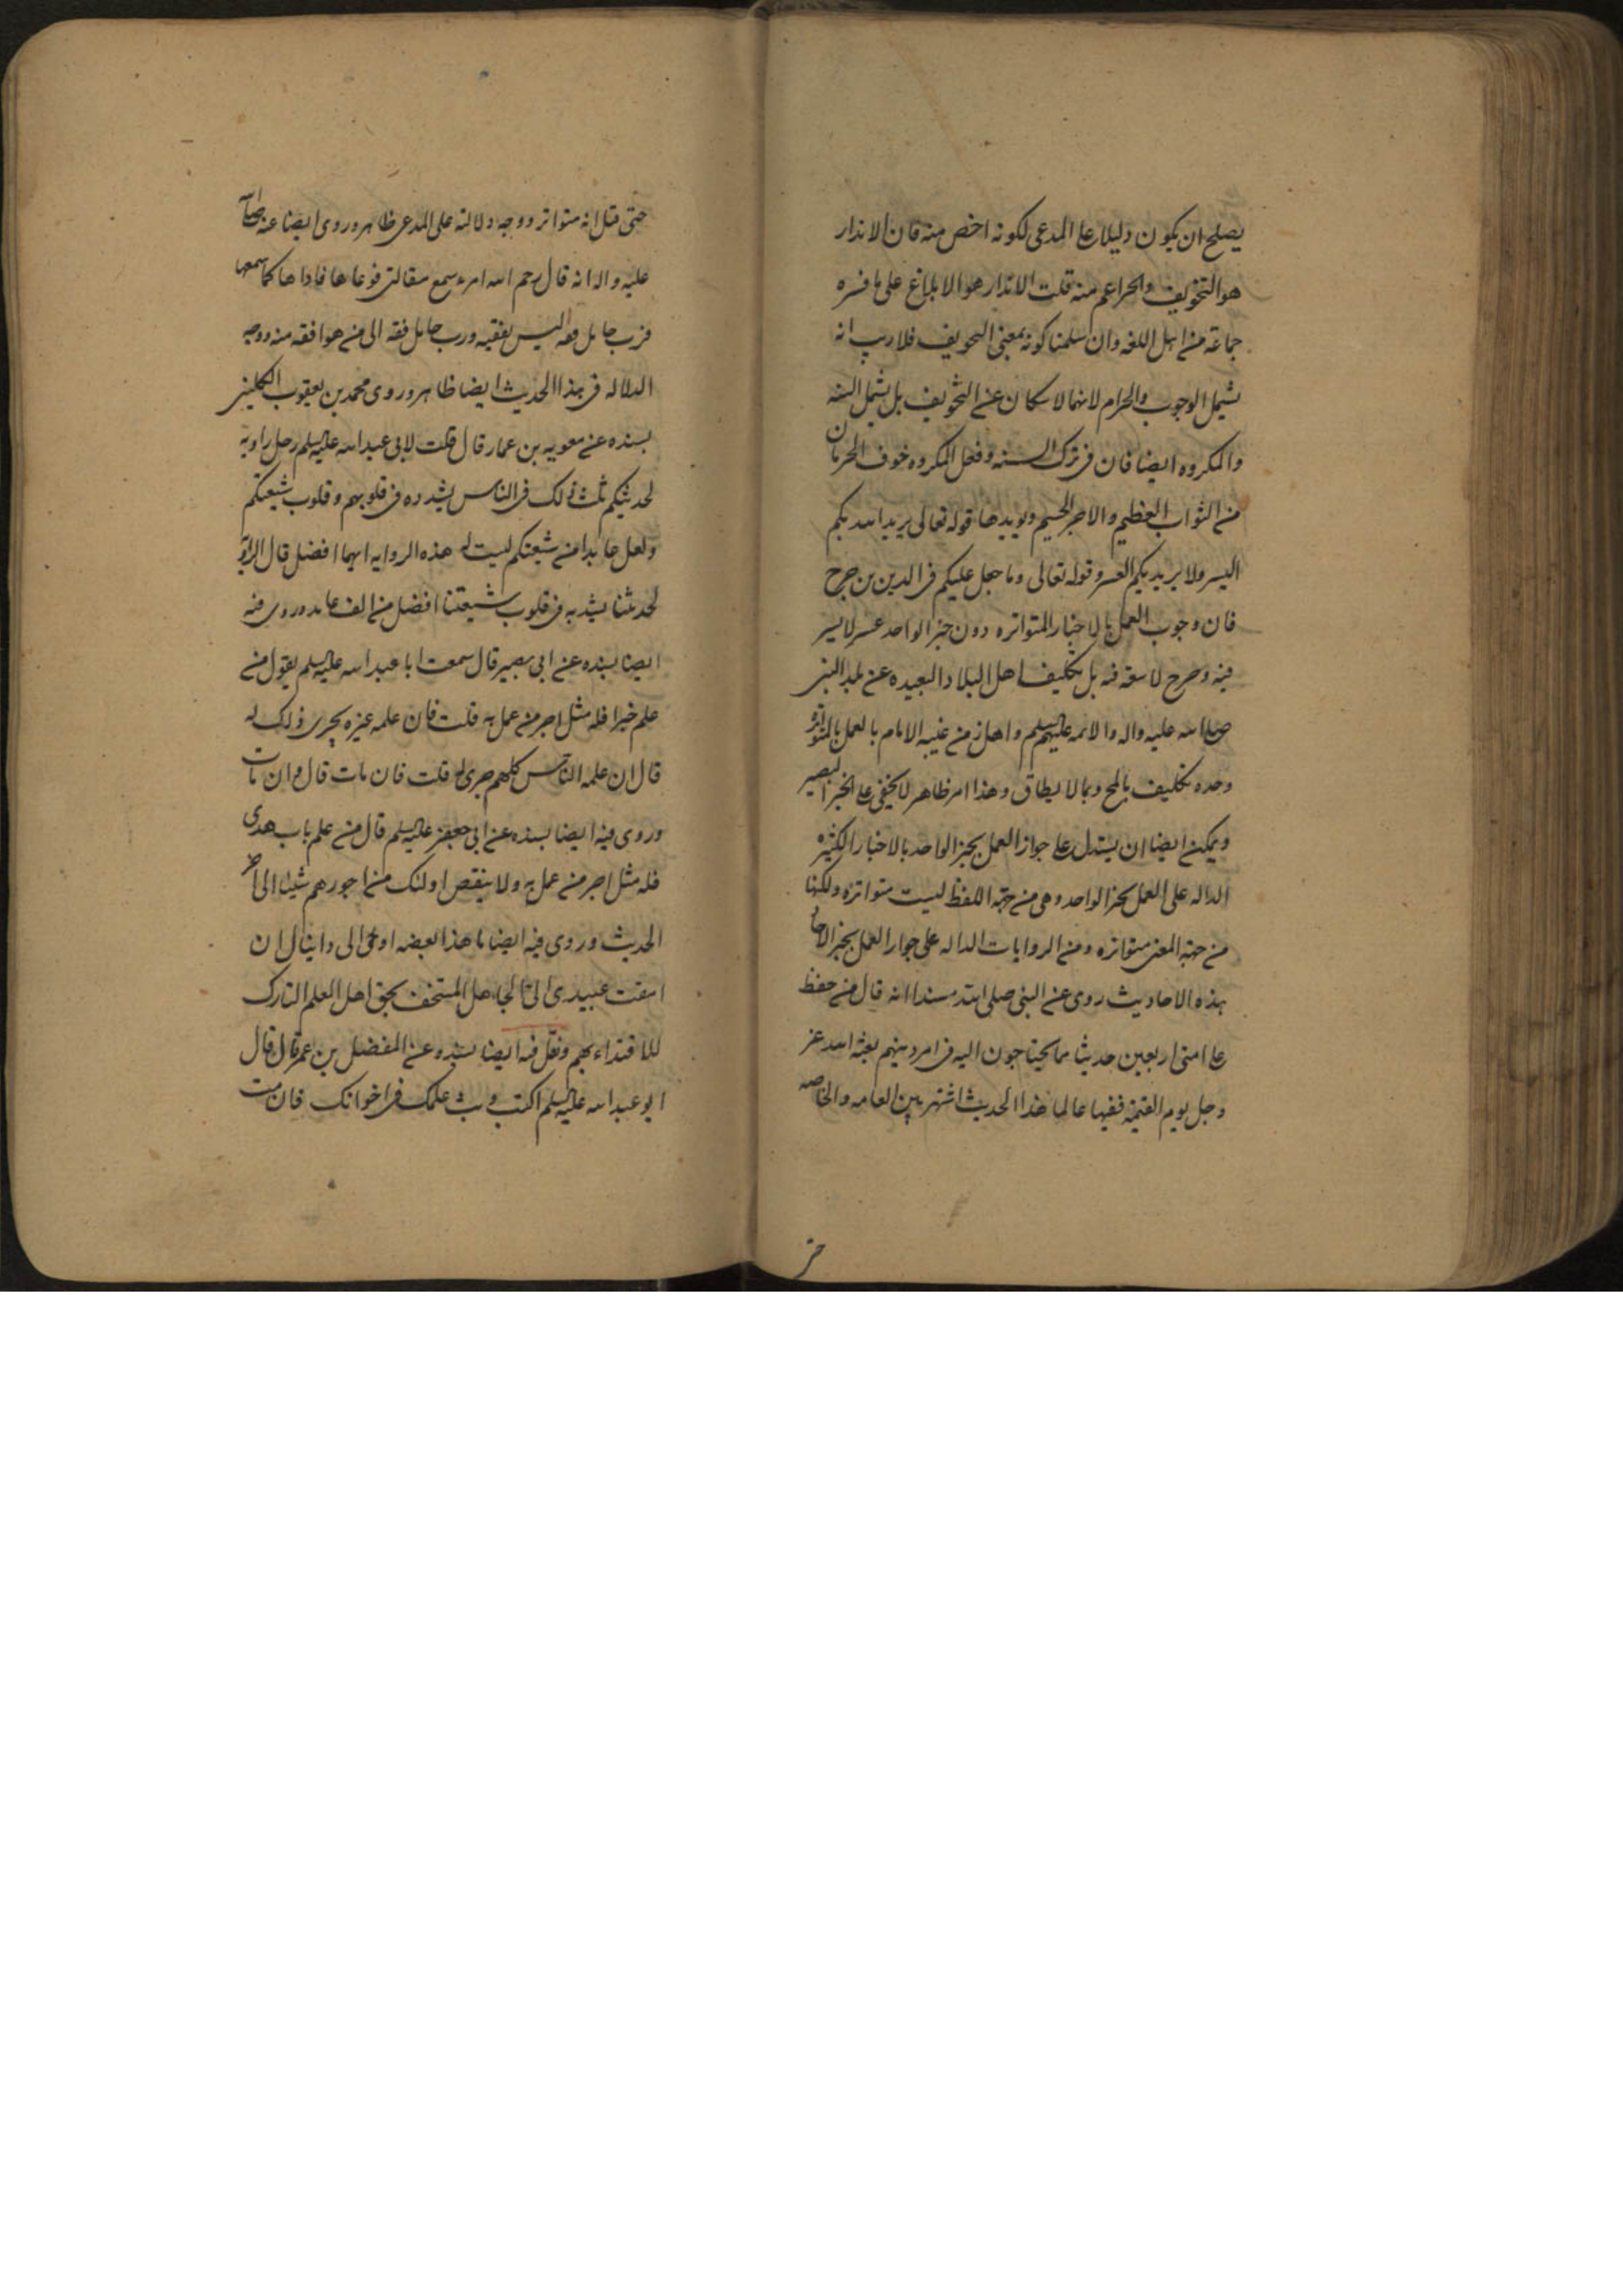 يصلح ان يكون دليلا علی المدعی لكونه اخص منه فان الانذار
هو التخويف والخبر اعم منه قلت الانذار هو الابلاغ علی ما فسره
جماعة من اهل اللغه وان سلمنا كونه بمعنی التخويف فلا ريب انه
يشمل الوجوب والحرام لانهما لا ينفكان عن التخويف بل يشمل السنه
والمكروه ايضا فان فی ترك السنه وفعل المكروه خوف الحرمان
من الثواب العظيم والاجر الجسيم ويويدها قوله تعالی يريد الله بكم
اليسر ولا يريد بكم العسر وقوله تعالی وما جعل عليكم فی الدين من حرج
فان وجوب العمل بالاخبار المتواتره دون خبر الواحد عسر لا يسر
فيه وحرج لا سعة فيه بل تكليف اهل البلاد البعيده عن بلد النبی
صلی الله عليه واله والائمه عليهم السلم واهل زمن غيبه الامام بالعمل بالمتواتر
وحده تكليف بالمح وبما لا يطاق وهذا امر ظاهر لا يخفی علی الخبير البصير
ويمكن ايضا ان يستدل علی جواز العمل بخبر الواحد بالاخبار الكثيره
الداله علی العمل بخبر الواحد وهی من جهة اللفظ ليست متواتره ولكنها
من جهة المعنی متواتره ومن الروايات الداله علی جواز العمل بخبر الاحاد
هذه الاحاديث روی عن النبی صلی الله مسندا انه قال من حفظ
علی امتی اربعين حديثا مما يحتاجون اليه فی امر دينهم بعثه الله عز
وجل يوم القيمة فقيها عالما هذا الحديث اشتهر بين العامه والخاصه
حتی
حتی قيل انه متواتر ووجه دلالته علی المدعی ظاهر وروی ايضا عنه صلی الله
عليه واله انه قال رحم الله امرء سمع مقالتی فوعاها فاداها كما سمعها
فرب حامل فقه ليس بفقيه ورب حامل فقه الی من هو افقه منه ووجه
الدلاله فی هذا الحديث ايضا ظاهر وروی محمد بن يعقوب الكلينی
بسنده عن معويه بن عمار قال قلت لابی عبد الله عليه السلم رجل راويه
لحديثكم يبث ذلك فی الناس يشدده فی قلوبهم وقلوب شيعتكم
ولعل عابدا من شيعتكم ليست له هذه الروايه ايهما افضل قال الراويه
لحديثنا يشد به فی قلوب شيعتنا افضل من الف عابد وروی فيه
ايضا بسنده عن ابی بصير قال سمعت ابا عبد الله عليه السلم يقول من
علم خيرا فله مثل اجر من عمل به قلت فان علمه غيره يجری ذلك له
قال ان علمه الناس كلهم جری له قلت فان مات قال وان مات
وروی فيه ايضا بسنده عن ابی جعفر عليه السلم قال من علم باب هدی
فله مثل اجر من عمل به ولا ينقص اولئك من اجورهم شيئا الی اخر
الحديث وروی فيه ايضا ما هذا بعضه اوحی الی دانيال ان
امقت عبيدی الی الجاهل المستخف بحق اهل العلم التارك
للاقتداء بهم ونقل فيه ايضا بسنده عن المفضل بن عمر قال قال
ابو عبد الله عليه السلم اكتب وبث علمك فی اخوانك فان مت